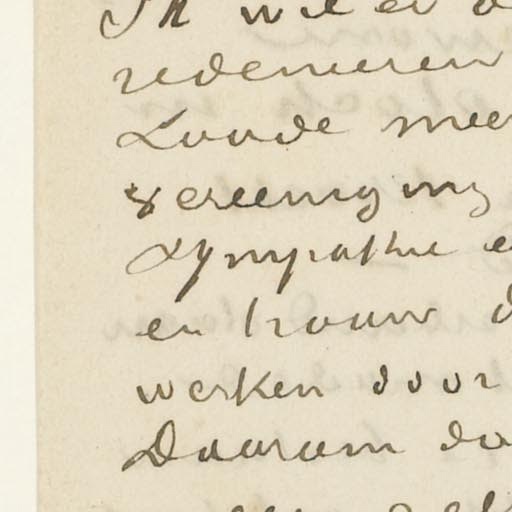 Ik wil er d
redeneeren
Loude mee
vereeniging
sympathie e
en trouw d
werken door
Daarom da